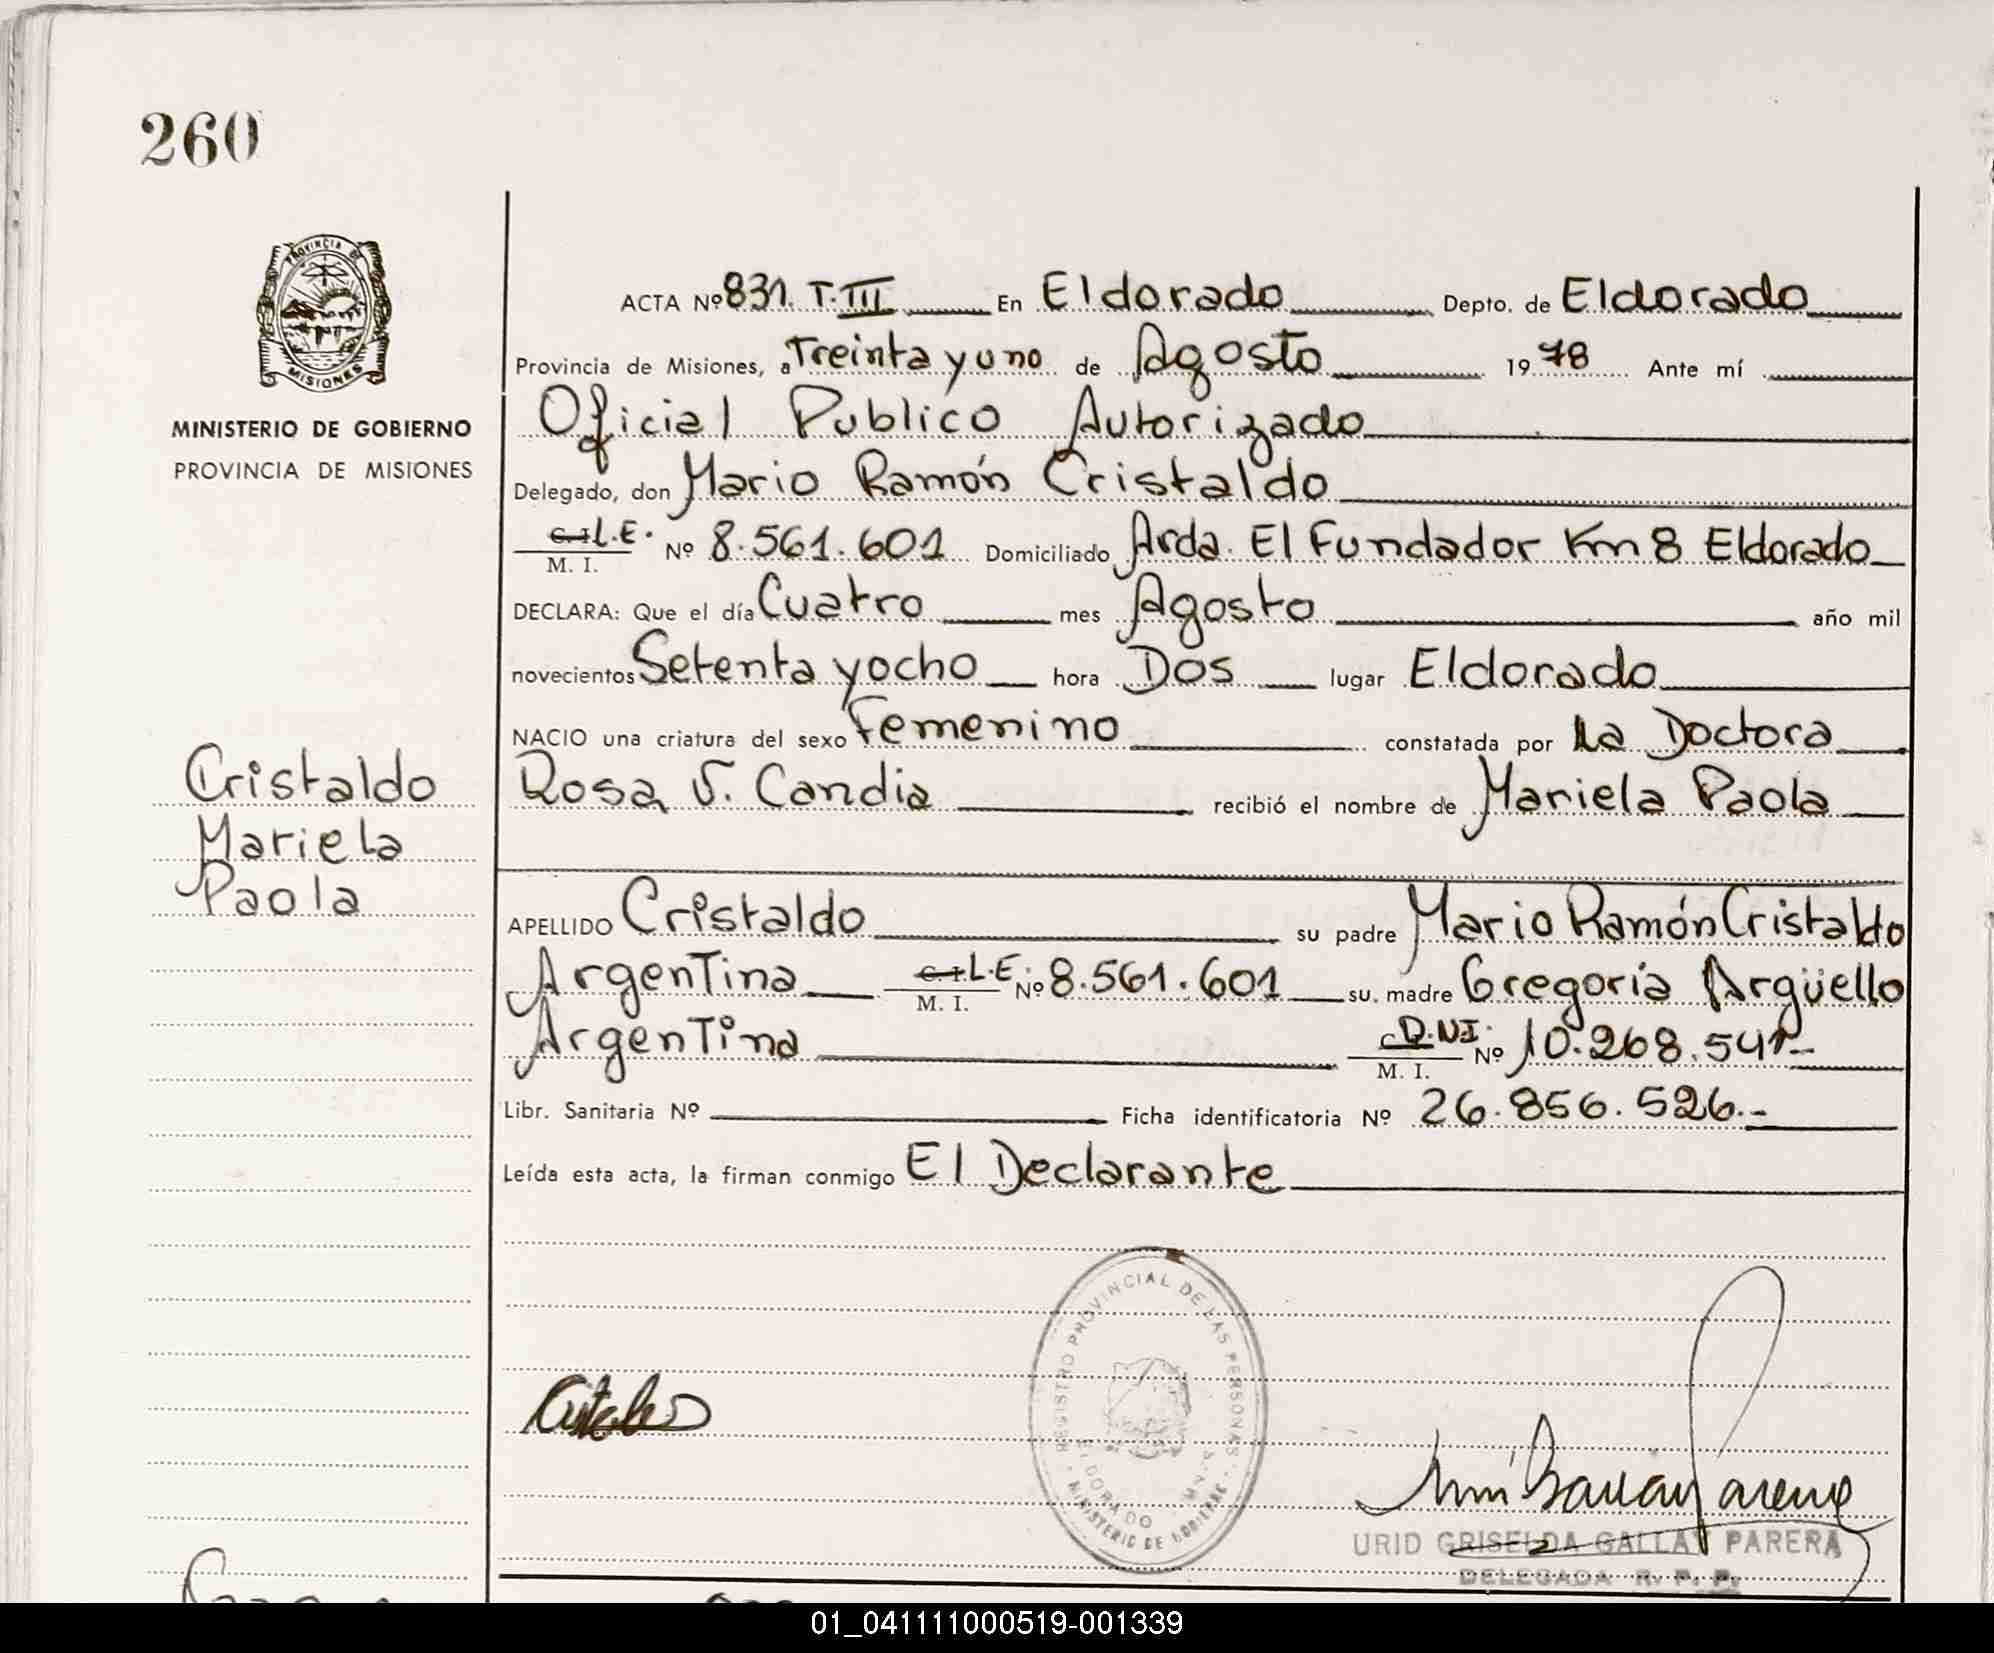 260
PROVINCIA DE
MISIONES
MINISTERIO DE GOBIERNO
PROVINCIA DE MISIONES
ACTA Nº 831. T. III En Eldorado Depto. de Eldorado
Provincia de Misiones, a Treinta y uno de Agosto 1978 Ante mí
Oficial Publico Autorizado
Delegado, don Mario Ramón Cristaldo
L.E. M. I. Nº 8.561.601 Domiciliado Avda. El Fundador Km 8 Eldorado
DECLARA: Que el día Cuatro mes Agosto año mil
novecientos Setenta y ocho hora Dos lugar Eldorado
NACIO una criatura del sexo Femenino constatada por La Doctora
Rosa V. Candia recibió el nombre de Mariela Paola
Cristaldo
Mariela
Paola
APELLIDO Cristaldo su padre Mario Ramón Cristaldo
Argentina L.E. M. I. Nº 8.561.601 su madre Gregoria Argüello
Argentina D.N.I. M. I. Nº 10.268.541
Libr. Sanitaria Nº Ficha identificatoria Nº 26.856.526.-
Leída esta acta, la firman conmigo El Declarante
REGISTRO PROVINCIAL DE LAS PERSONAS
ELDORADO
MINISTERIO DE GOBIERNO
URID GRISELDA GALLAY PARERA
DELEGADA R. P. P.
01_041111000519-001339